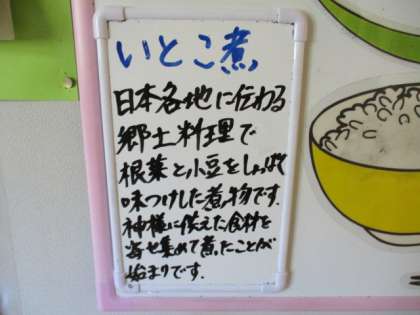 いとこ煮
日本各地に伝わる
郷土料理で
根菜と小豆をしょっぱく
味つけした煮物です.
神様に供えた食料を
寄せ集めて煮たことが
始まりです.